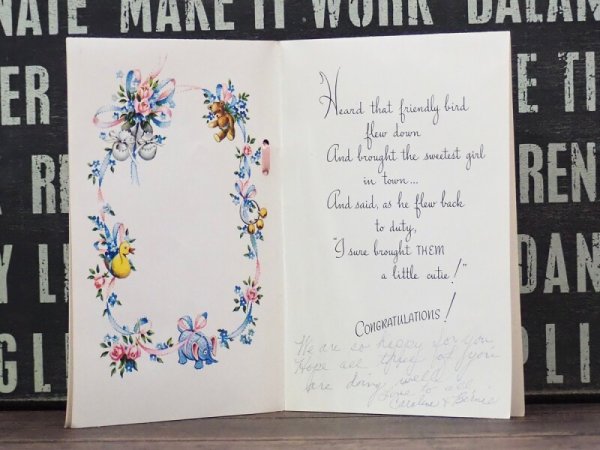 NATE MAKE IT WORK BALAN
ER
E TI
R
REN
Y LI
DAN
GL
LI
Heard that friendly bird
flew down
And brought the sweetest girl
in town...
And said, as he flew back
to duty,
"I sure brought THEM
a little cutie!"
CONGRATULATIONS!
We are so happy for you
Hope all three of you
are doing well
Love to all
Caroline &